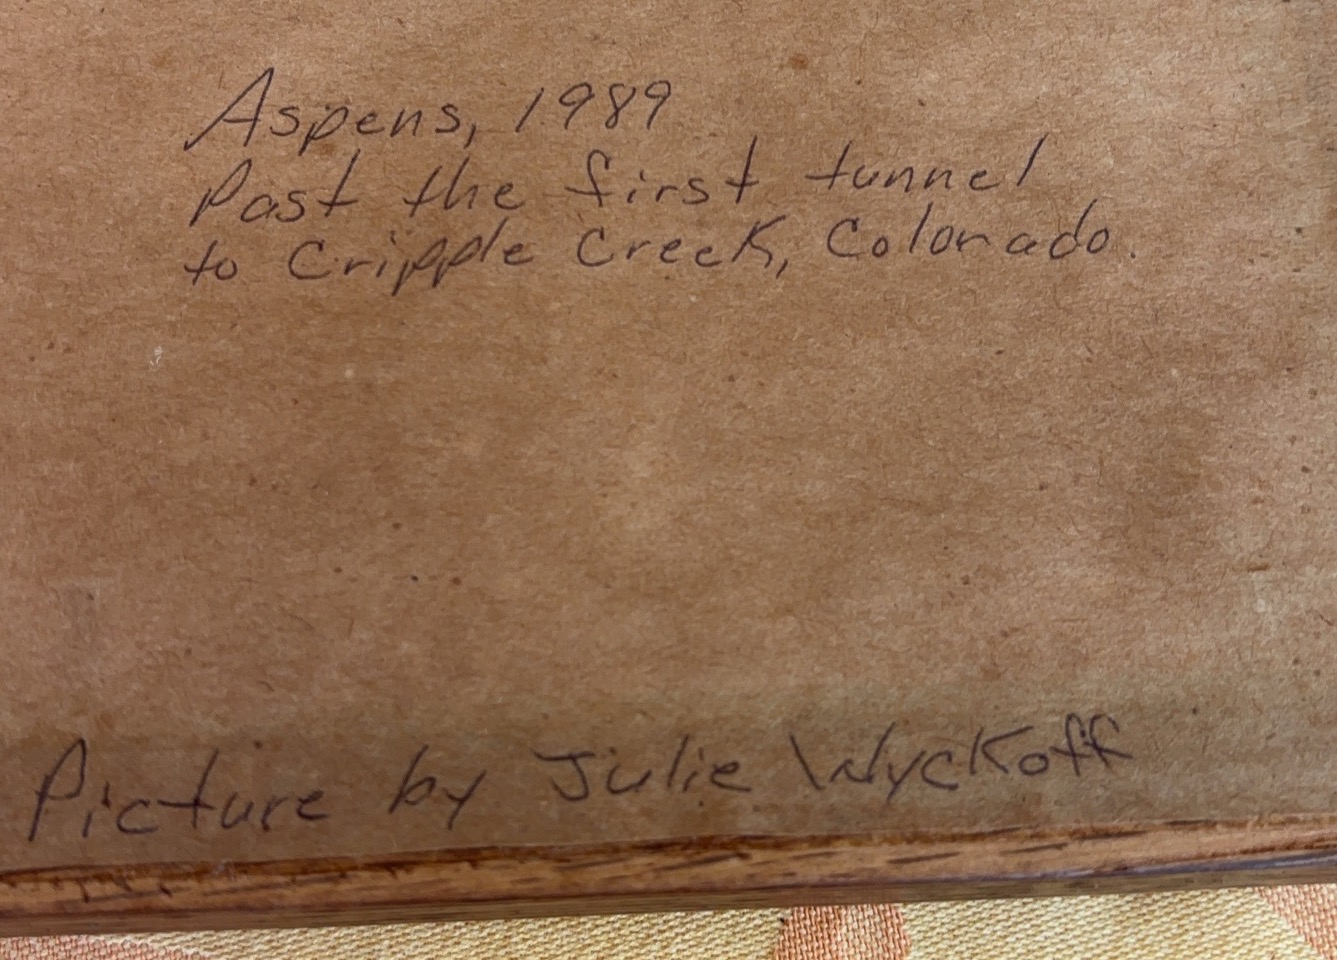 Aspens, 1989
Past the first tunnel
to Cripple Creek, Colorado.
Picture by Julie Wyckoff